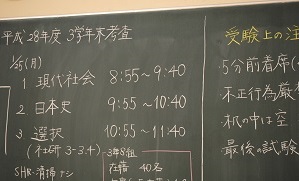 平成28年度 3学年末考査
1/25(月)
1 現代社会 8:55~9:40
2 日本史 9:55~10:40
3 選択 10:55~11:40
(社研 3-3.4)
3年8組
在籍 40名
SHR・清掃ナシ
受験上の注
5分前着席
不正行為厳
机の中は空
最後の試験